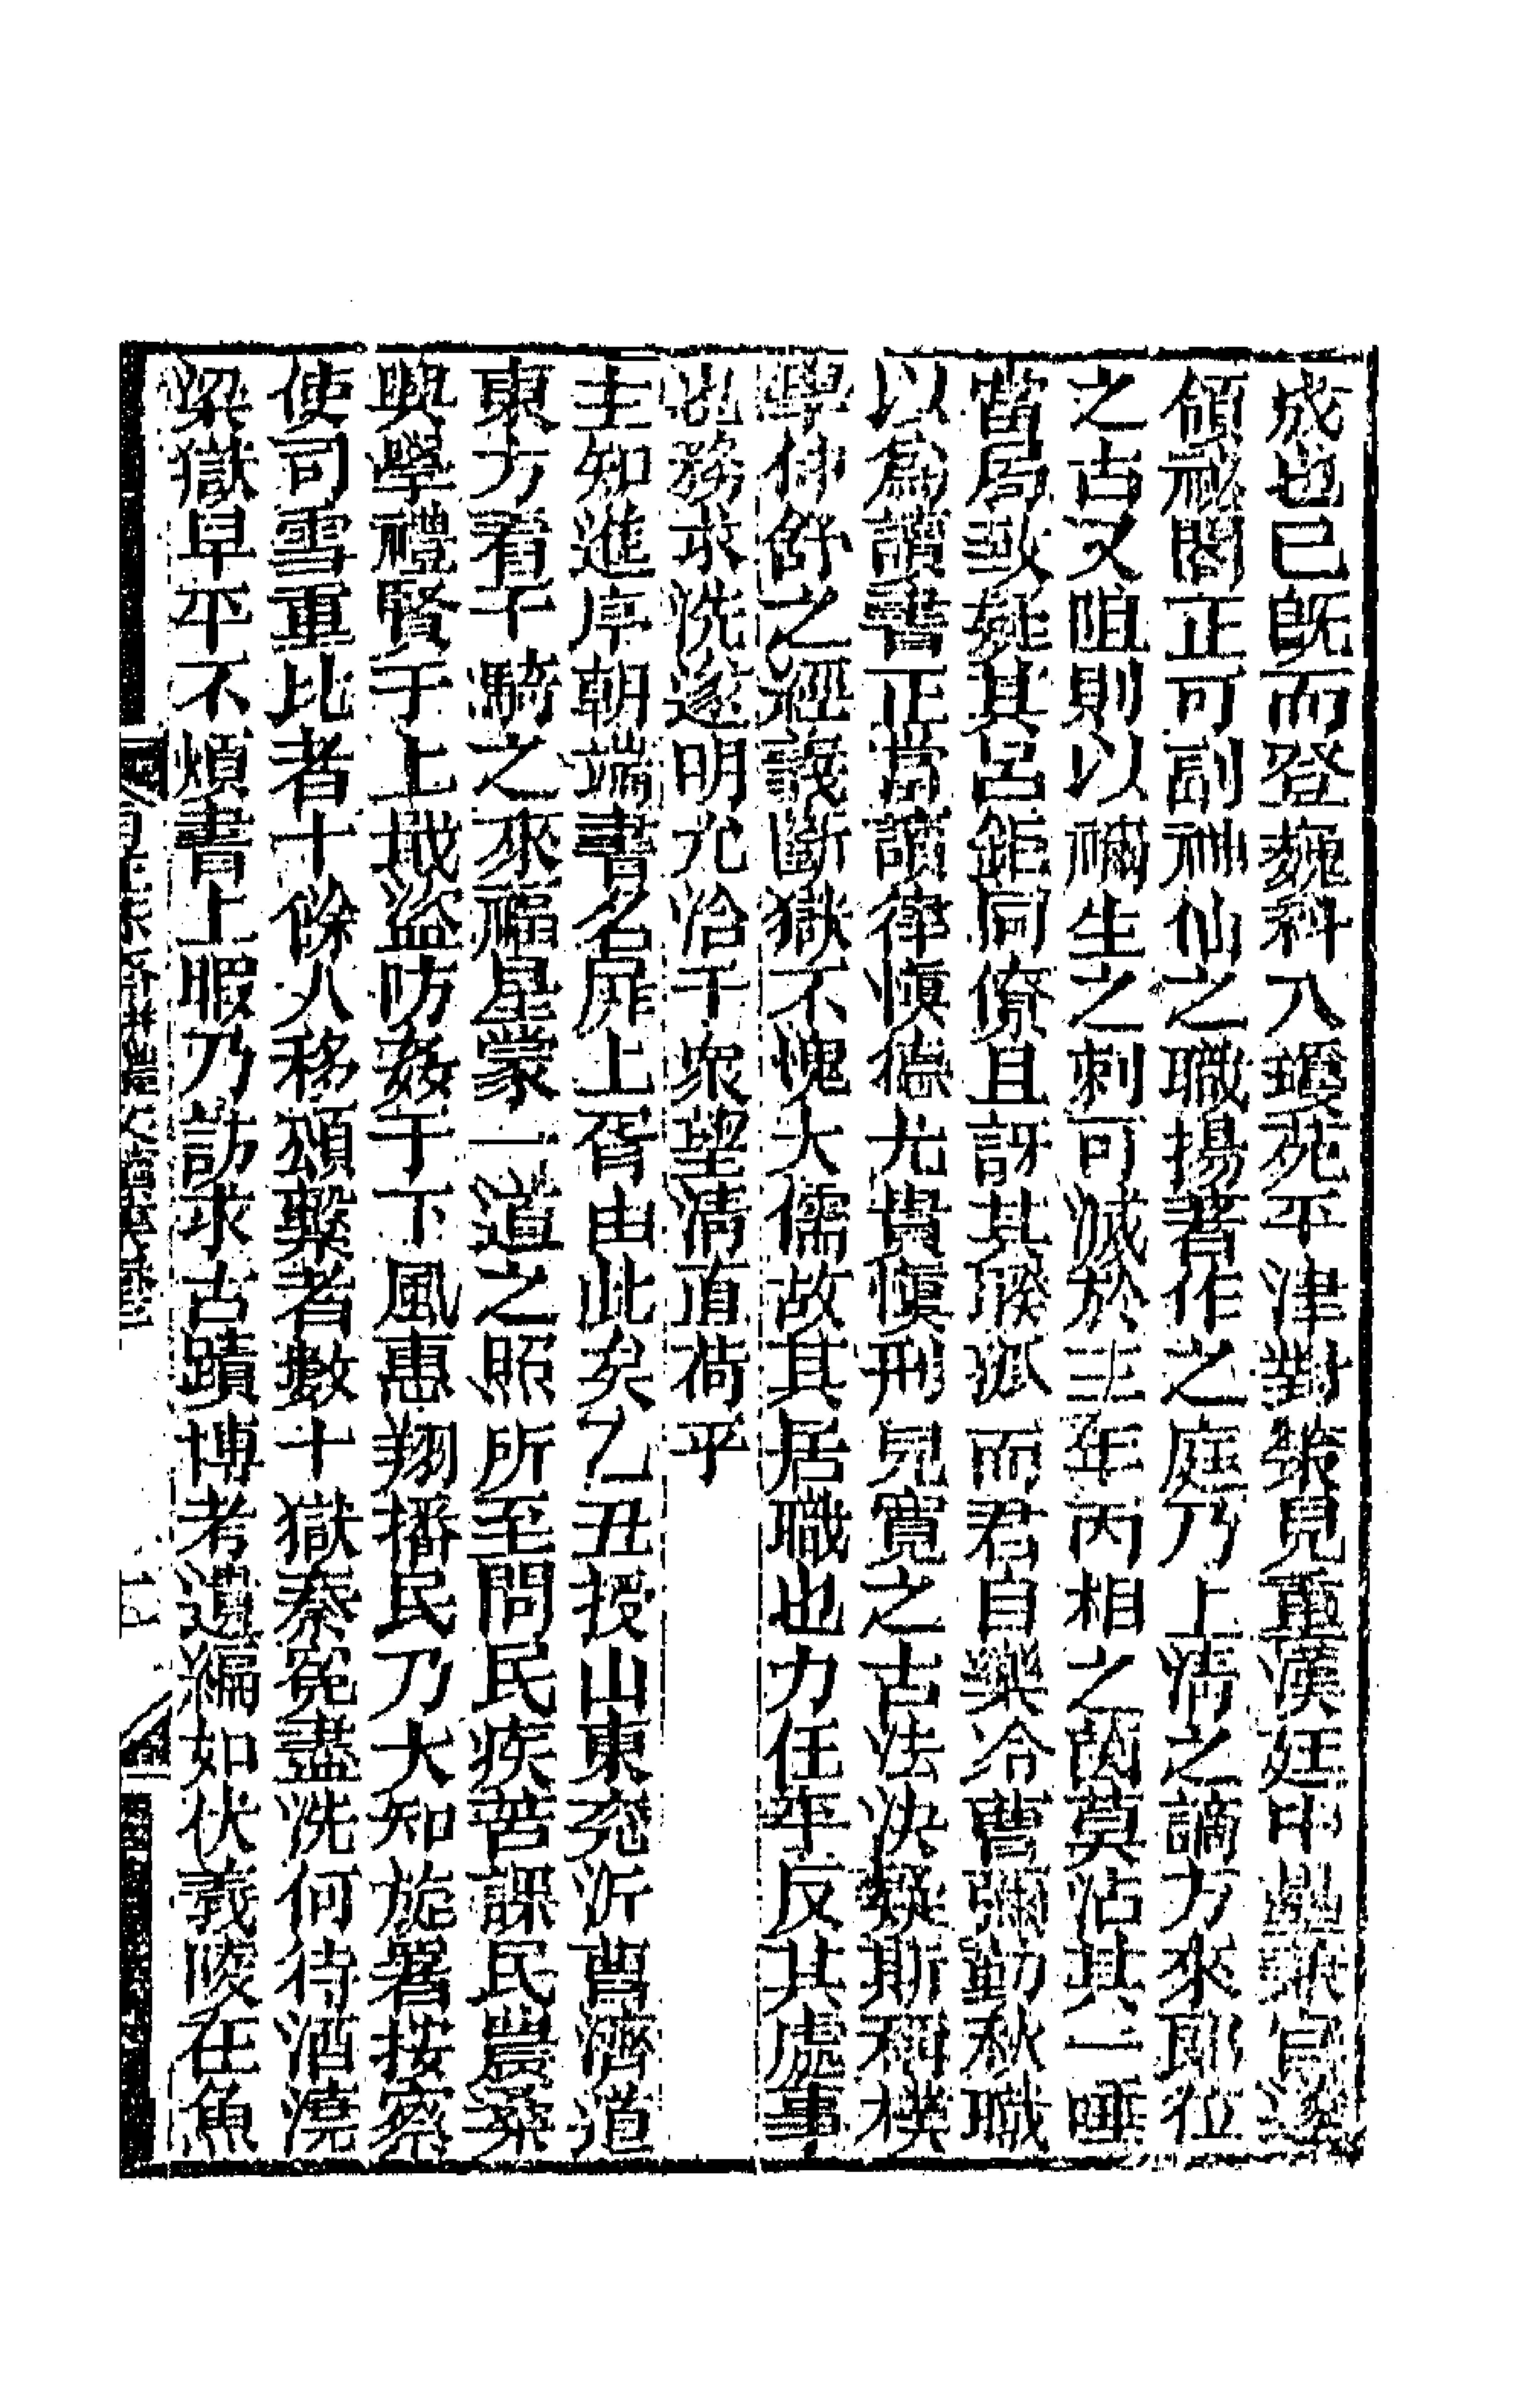 成也已旣而登巍科入瓊苑平津對策見重漢廷中壘罷官遂
領祕閣正可副神仙之職揚著作之庭乃上淸之謫方來郎位
之古又阻則以禰生之刺可滅於三年丙相之茵莫沾其一唾
當局致疑其呂鉅同僚且訝其揆孤而君自樂冷曹彌勤秋職
以爲讀書正當讀律愼德尤貴愼刑兒寬之古法決疑斯稱樸
學仲舒之經議斷獄不愧大儒故其居職也力任平反其處事
也務求洗邃明允洽于衆望淸直荷乎
主知進序朝端書名扆上胥由此矣乙丑授山東兗沂曹濟道
東方看千騎之來福星蒙一道之照所至問民疾苦課民農桑
興學禮賢于上戢盜防姦于下風惠翔播民乃大知旋署按察
使司雪重比者十餘人移頌繫者數十獄秦冤盡洗何待酒澆
梁獄早平不煩書上暇乃訪求古蹟博考遺編如伏羲陵在魚